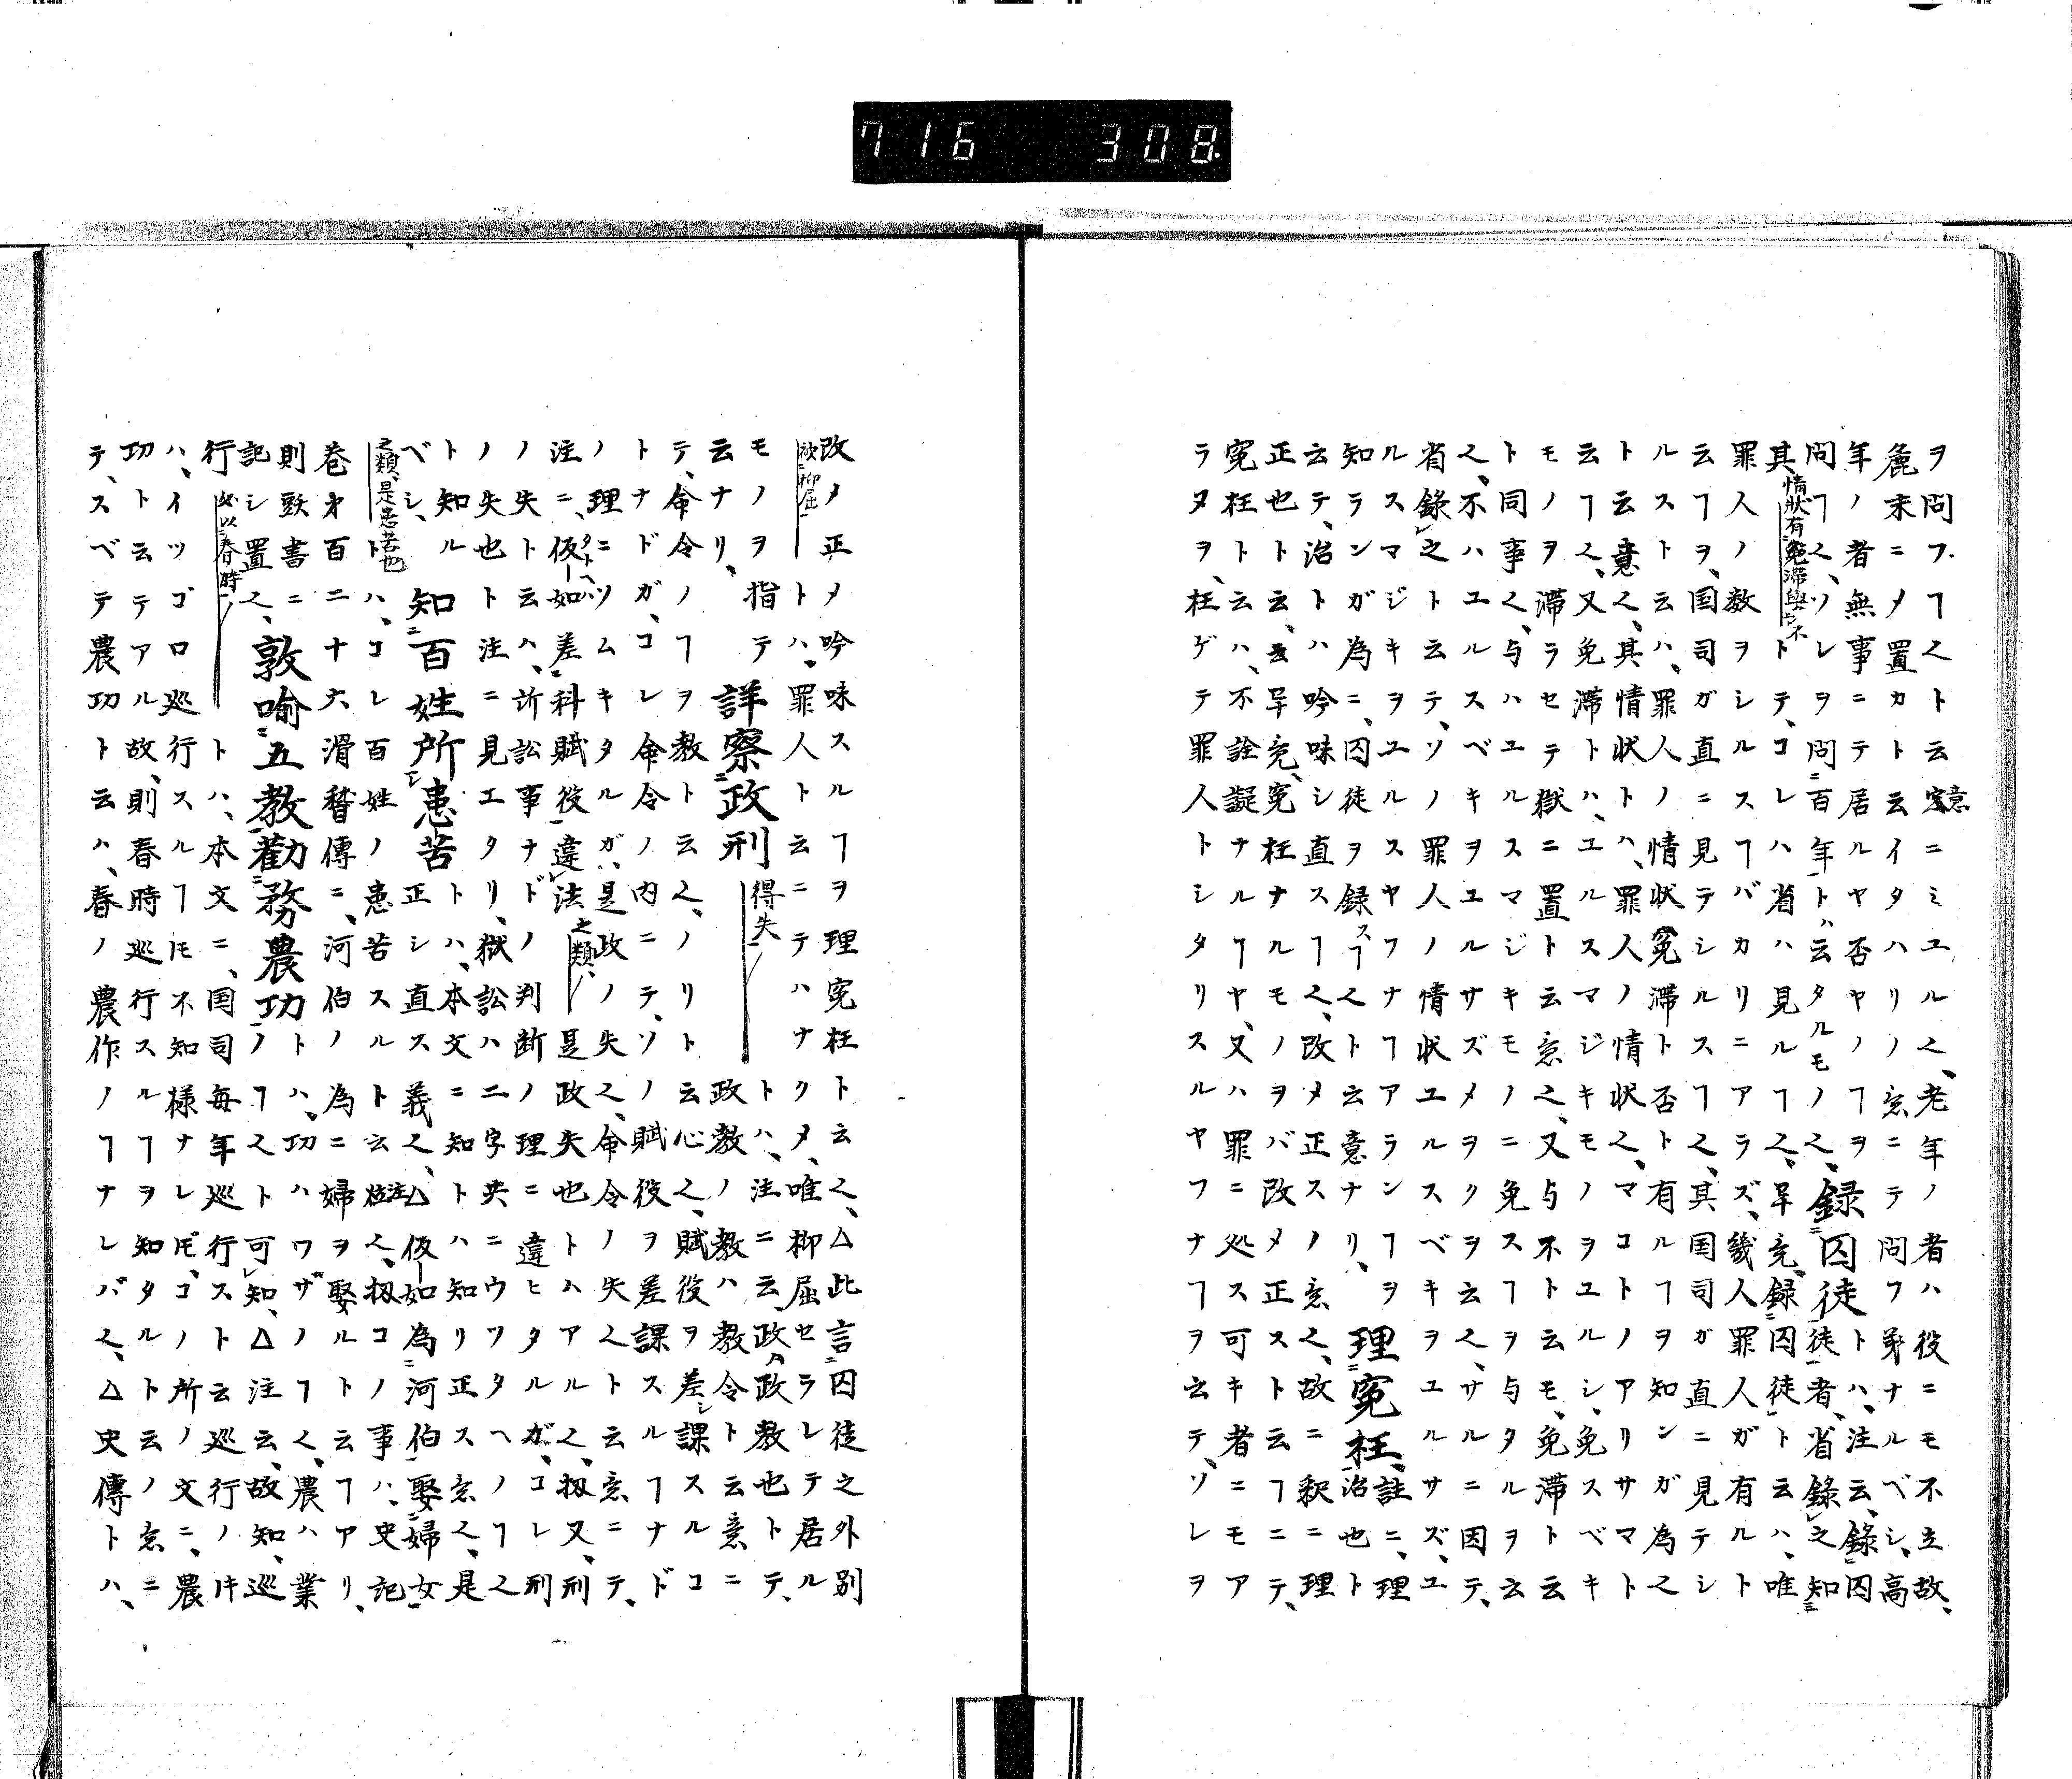 716 308.
ヲ問フヿ也ト云意ニミユル也、老年ノ者ハ役ニモ不立故、
麁末ニメ置カト云イタハリノ意ニテ問フ㐧ナルベシ、高
年ノ者無事ニテ居ルヤ否ヤノヿヲ
問ヿ也、ソレヲ問百年トハ云タルモノ也、録囚徒トハ、注云、録囚
徒者、省録之知
其情状有冤滞與不トテ、コレハ省ハ見ルヿ也、早竟録囚徒ト云ハ、唯
罪人ノ数ヲシルスヿバカリニアラズ、幾人罪人ガ有ルト
云ヿヲ、国司ガ直ニ見テシルスヿ也、其国司ガ直ニ見テシ
ルスト云ハ、罪人ノ情状冤滞ト否ト有ルヿヲ知ンガ為也
ト云意也、其情状トハ、罪人ノ情状也、マコトノアリサマト
云ヿ也、又免滞トハ、ユルスマジキモノヲユルシ、免スベキ
モノヲ滞ラセテ獄ニ置ト云意也、又与不ト云モ、免滞ト云
ト同事也、与ハユルスマジキモノニ免スヿヲ与タルヲ云
也、不ハユルスベキヲユルサズメヲクヲ云也、サルニ因テ、
省録之ト云テ、ソノ罪人ノ情状ユルスベキヲユルサズ、ユ
ルスマジキヲユルスヤフナヿアランヿヲ
知ランガ為ニ、囚徒ヲ録スヿ也ト云意ナリ、理冤枉、註ニ、理
治也ト
云テ、治トハ吟味シ直スヿ也、改メ正スノ意也、故ニ釈ニ理
正也ト云、早竟、冤枉ナルモノヲバ改メ正スト云ヿニテ、
冤枉ト云ハ、不詮議ナルヿヤ、又ハ罪ニ処ス可キ者ニモア
ラヌヲ、枉ゲテ罪人トシタリスルヤフナヿヲ云テ、ソレヲ
改メ正メ吟味スルヿヲ理冤枉ト云也、△此言囚徒之外別
被抑屈トハ、罪人ト云ニテハナクメ、唯抑屈セラレテ居ル
モノヲ指テ 詳察政刑得失トハ、注ニ云、政政教也トテ、
云ナリ、政教ノ教ハ教令ト云意ニ
テ、命令ノヿヲ教ト云也、ノリト云心也、賦役ヲ差課スルコ
トナドガ、コレ命令ノ内ニテ、ソノ賦役ヲ差課スルヿナド
ノ理ニツムキタルガ、是政ノ失也、命令ノ失也ト云意ニテ、
注ニ、仮如差科賦役違法之類、是政失也トハアル也、扨又、刑
ノ失ト云ハ、訴訟事ナドノ判断ノ理ニ違ヒタルガ、コレ刑
ノ失也ト注ニ見エタリ、獄訟ハ二字共ニウツタヘノヿ也
ト知ル 知百姓所患苦トハ、本文ニ知トハ知リ正ス意也、是
ベシ、正シ直ス義也、△注仮如為河伯娶婦女
之類、是患苦也トハ、コレ百姓ノ患苦スルト云位也、扨コノ事ハ、史記
巻㐧百二十六滑稽傳ニ、河伯ノ為ニ婦ヲ娶ルト云ヿアリ、
則㪽書ニ 敦喩五教勸務農功トハ、功ハワザノヿ也、農ハ業
記シ置也、ノヿ也ト可知、△注云、故知、巡
行必以春時トハ、本文ニ、国司毎年巡行スト云巡行ノ件
ハ、イツゴロ巡行スルヿトモ不知様ナレドモ、コノ所ノ文ニ、農
功ト云テアル故、則春時巡行スルヿヲ知タルト云ノ意ニ
テ、スベテ農功ト云ハ、春ノ農作ノヿナレバ也、△史傳トハ、